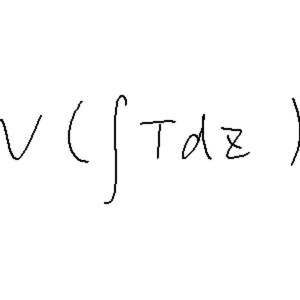 V(∫Tdz)